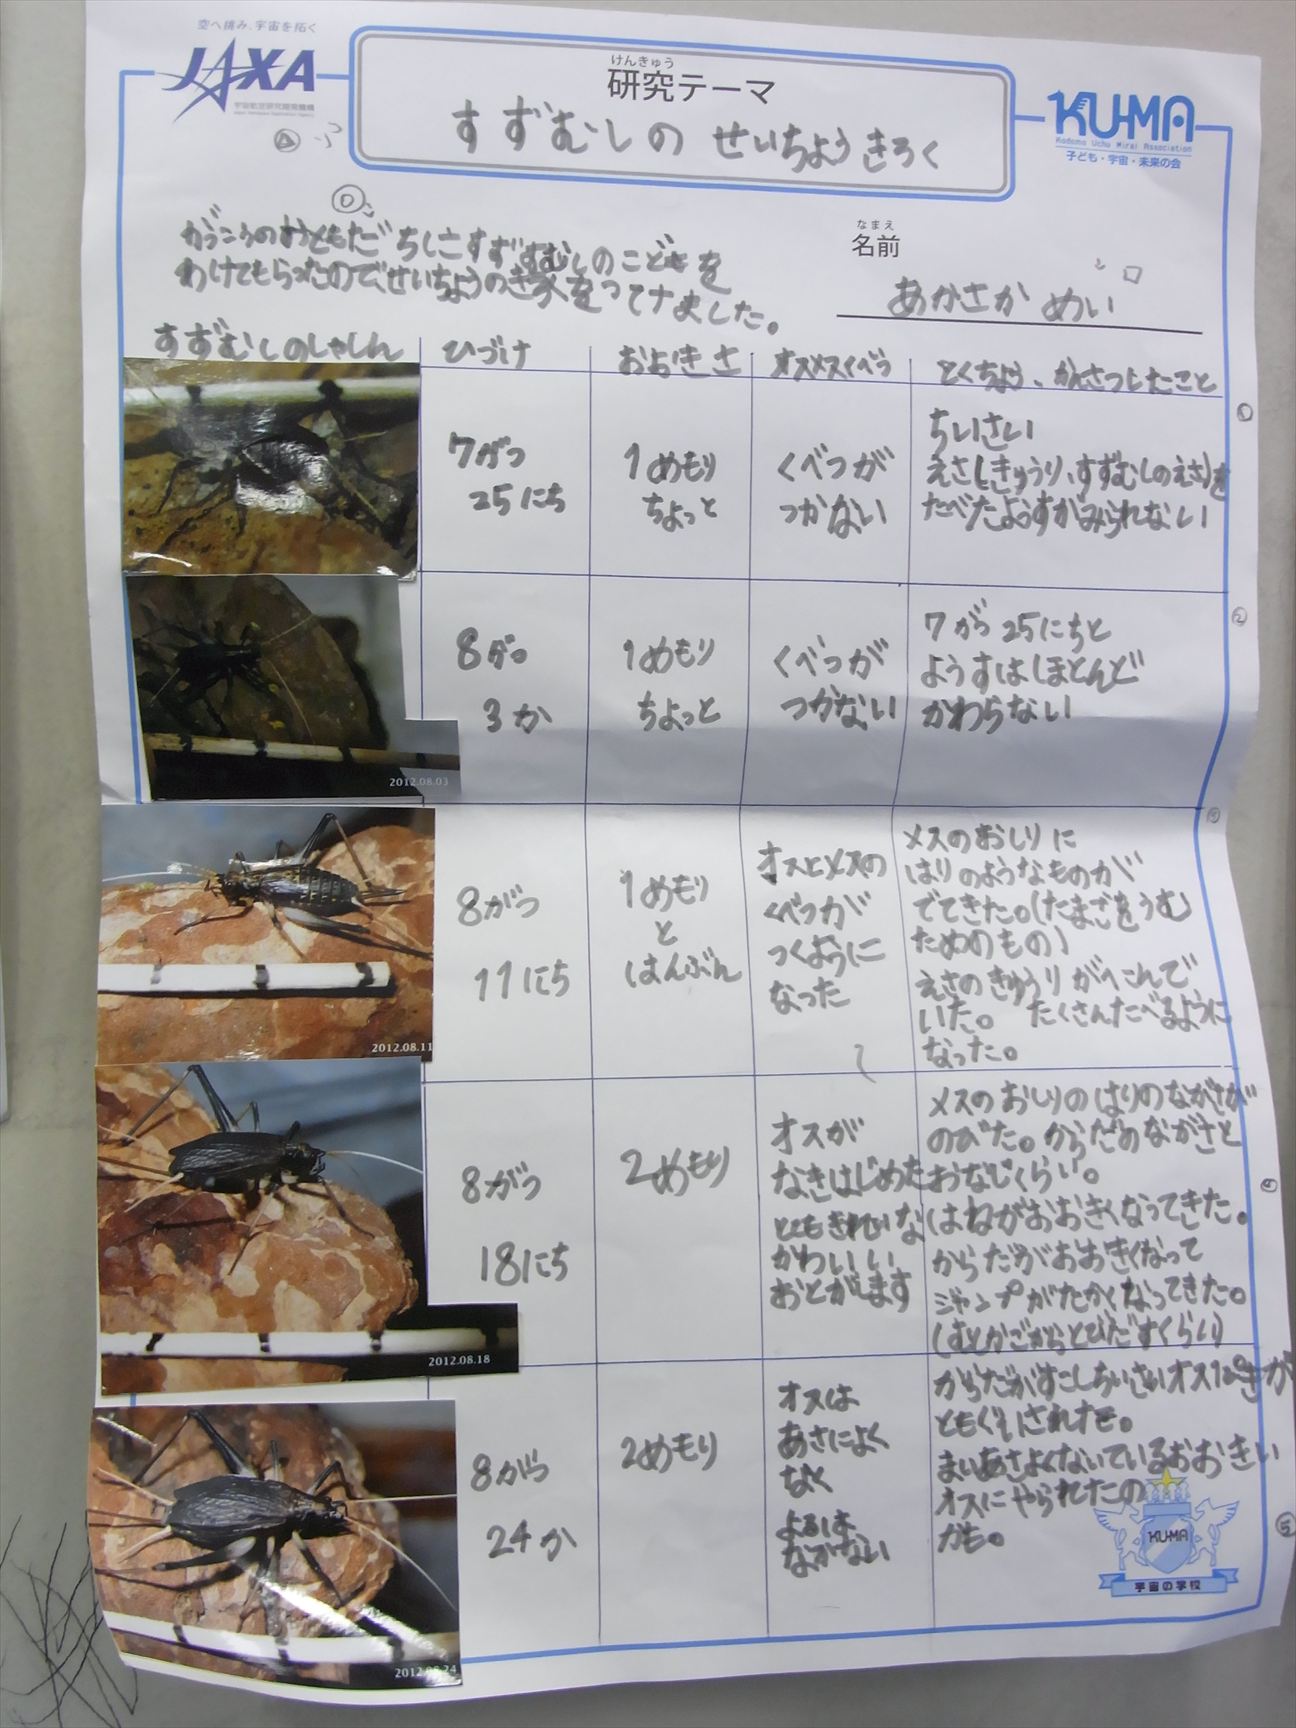 空へ挑み、宇宙を拓く
JAXA
宇宙航空研究開発機構
Japan Aerospace Exploration Agency
けんきゅう
研究テーマ
すずむしの せいちょうきろく
KU-MA
Kodomo Uchu Mirai Association
子ども・宇宙・未来の会
なまえ
名前
あかさか めい
わけてもらったので、せいちょうの
ました。
すずむしのしゃしん
ひづけ
おおきさ
オスメスくべつ
とくちょう、かんさつしたこと
①
7がつ
25にち
1めもり
ちょっと
くべつが
つかない
ちいさい
えさ(きゅうり、すずむしのえさ)を
たべたようすがみられない
②
8がつ
3か
1めもり
ちょっと
くべつが
つかない
7がつ25にちと
ようすはほとんど
かわらない
2012.08.03
③
8がつ
11にち
1めもり
と
はんぶん
オスとメスの
くべつが
つくように
なった
メスのおしりに
はりのようなものが
でてきた。(たまごをうむ
ためのもの)
えさのきゅうりがへこんで
いた。 たくさんたべるように
なった。
2012.08.11
④
8がつ
18にち
2めもり
オスが
なきはじめた
とてもきれいな
かわいい
おとがします
メスのおしりのはりのながさが
のびた。からだのながさと
おなじくらい。
はねがおおきくなってきた。
からだがおおきくなって
ジャンプがたかくなってきた。
(むしかごからとびだすくらい)
2012.08.18
⑤
8がつ
24か
2めもり
オスは
あさによく
なく
よるは
なかない
からだがすこしちいさいオス1ぴきが
ともぐいされた。
まいあさよくないているおおきい
オスにやられたの
かも。
2012.08.24
KU-MA
宇宙の学校